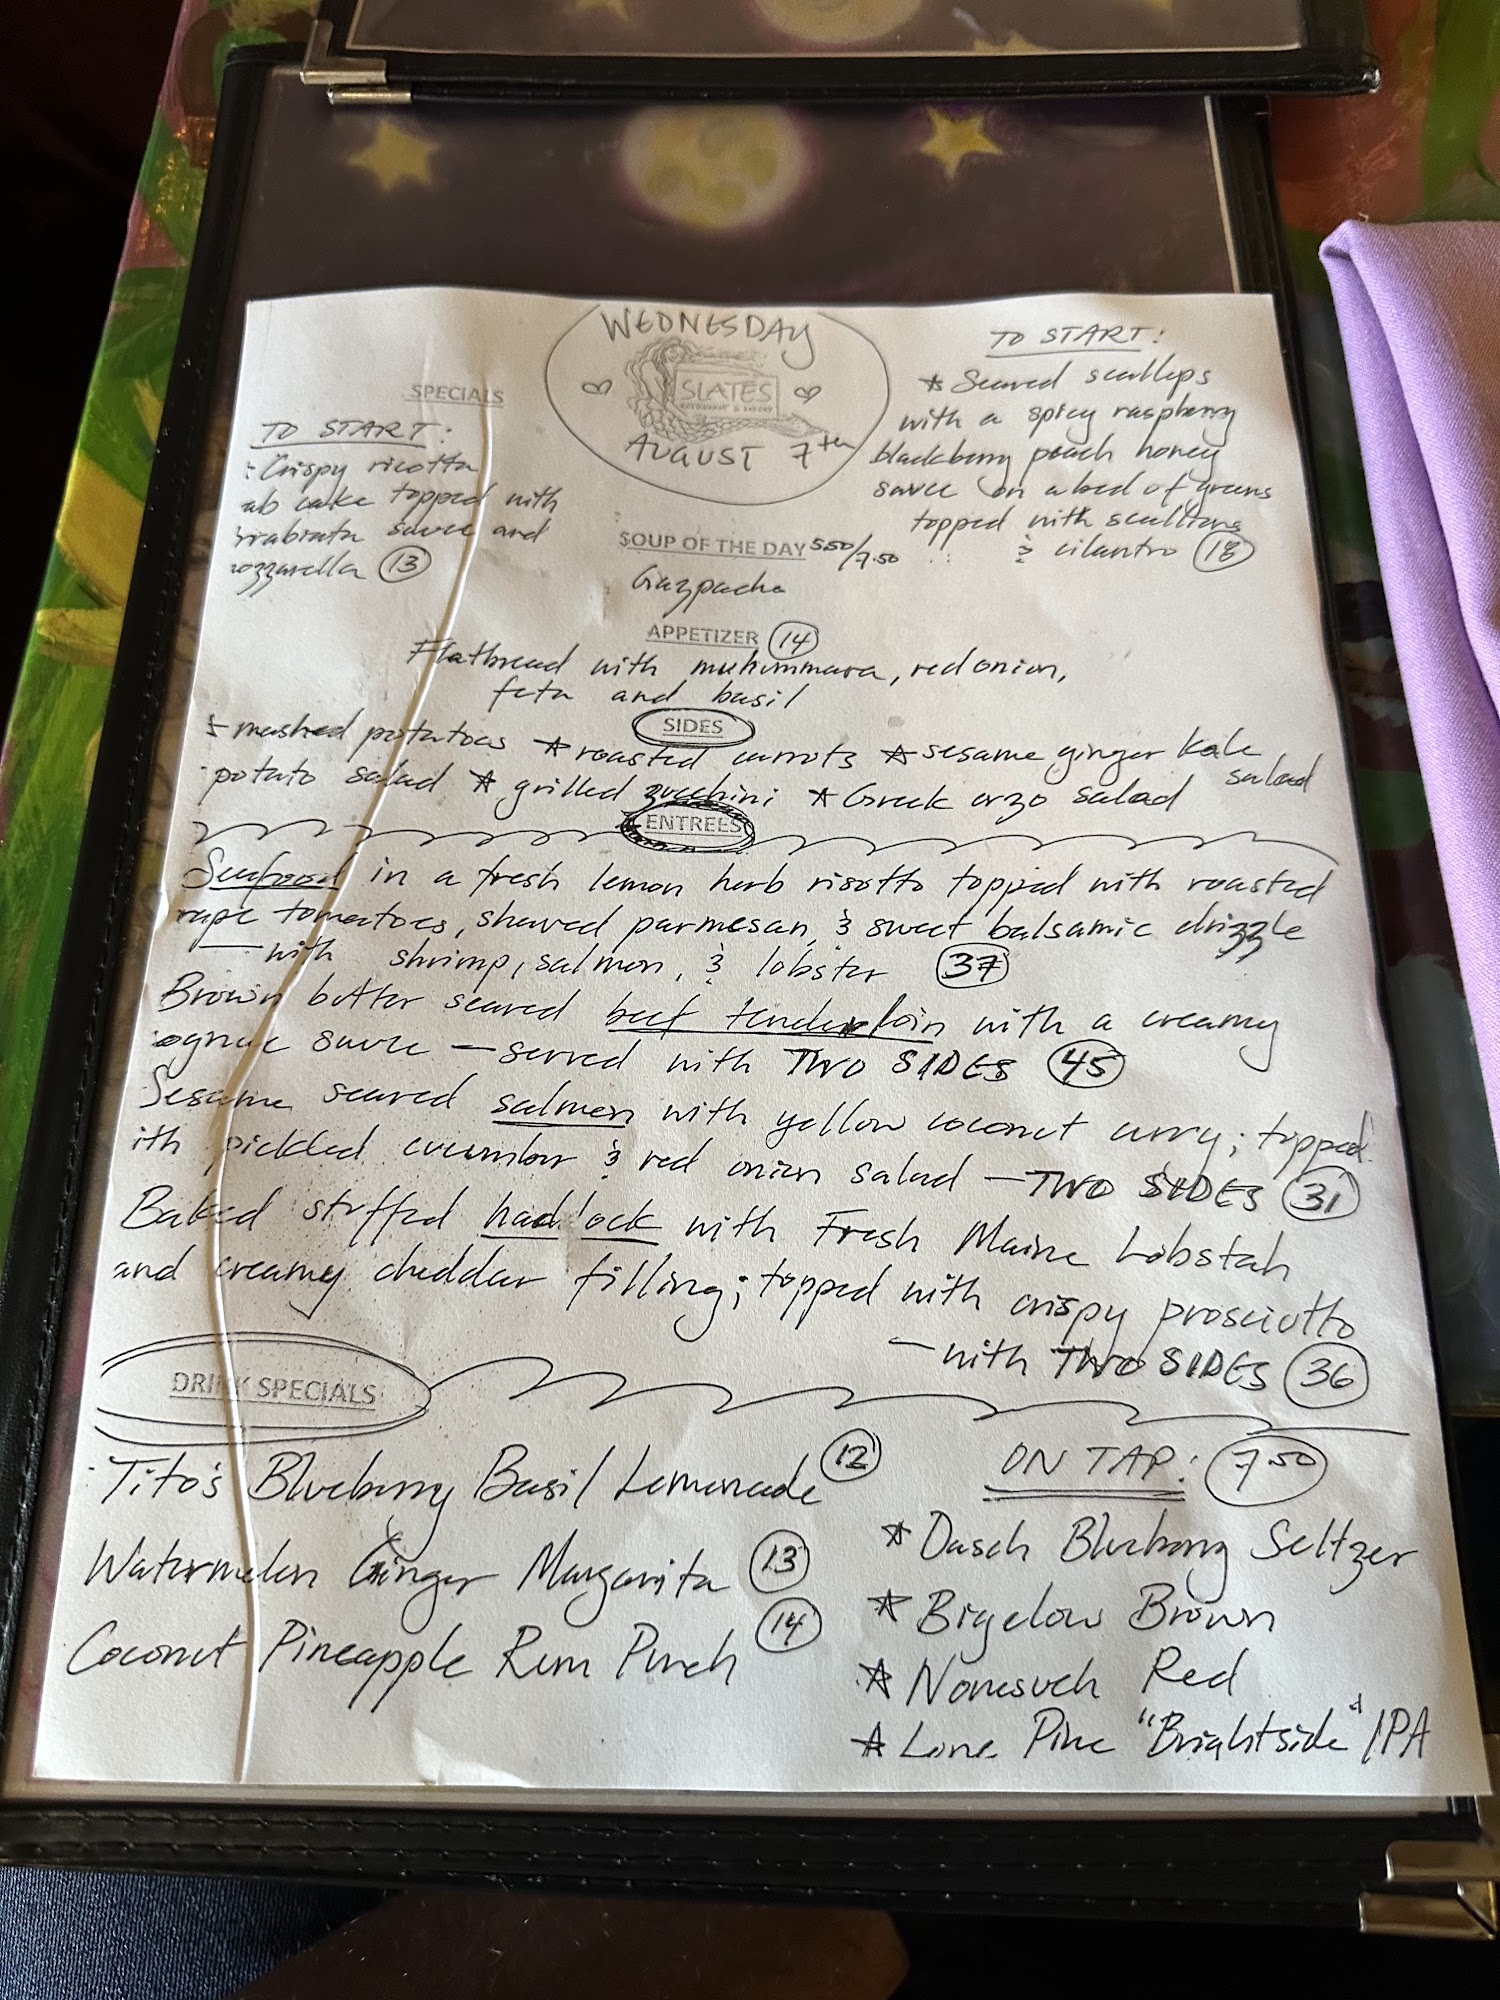 WEDNESDAY
SLATES
RESTAURANT & BAKERY
AUGUST 7th
SPECIALS
TO START:
Crispy ricotta
ab cake topped with
rrabiata sauce and
ozzarella 13
TO START:
* Seared scallops
with a spicy raspberry
blackberry peach honey
sauce on a bed of greens
topped with scallions
& cilantro 18
SOUP OF THE DAY 5.50/7.50
Gazpacho
APPETIZER 14
Flatbread with muhummara, red onion,
feta and basil
SIDES
* mashed potatoes * roasted carrots * sesame ginger kale salad
potato salad * grilled zucchini * Greek orzo salad
ENTREES
Seafood in a fresh lemon herb risotto topped with roasted
rape tomatoes, shaved parmesan, & sweet balsamic drizzle
— with shrimp, salmon, & lobster 37
Brown butter seared beef tenderloin with a creamy
ognac sauce — served with TWO SIDES 45
Sesame seared salmon with yellow coconut curry; topped
ith pickled cucumber & red onion salad — TWO SIDES 31
Baked stuffed haddock with Fresh Maine Lobstah
and creamy cheddar filling; topped with crispy prosciutto
— with TWO SIDES 36
DRINK SPECIALS
Tito's Blueberry Basil Lemonade 12
Watermelon Ginger Margarita 13
Coconut Pineapple Rum Punch 14
ON TAP: 7.50
* Dasch Blueberry Seltzer
* Bigelow Brown
* Nonesuch Red
* Lone Pine "Brightside" IPA